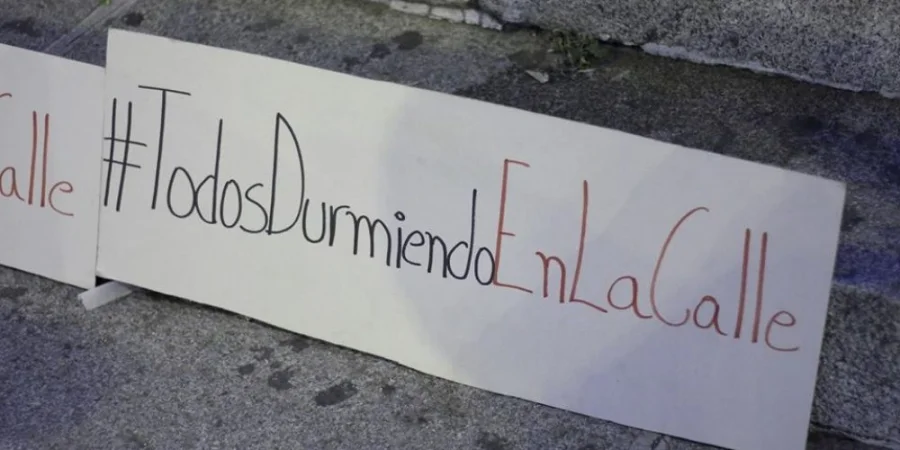 alle
#TodosDurmiendoEnLaCalle